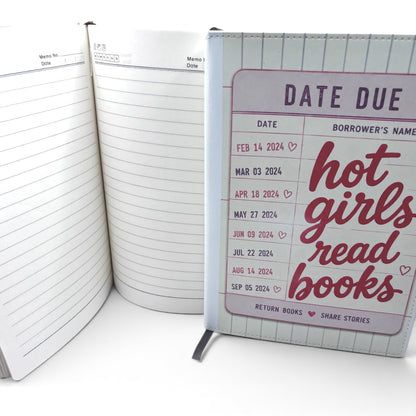 Memo No
Date
Memo No
Date
DATE DUE
DATE
BORROWER'S NAME
FEB 14 2024
MAR 03 2024
APR 18 2024
MAY 27 2024
JUN 09 2024
JUL 22 2024
AUG 14 2024
SEP 05 2024
hot
girls
read
books
RETURN BOOKS ♥ SHARE STORIES